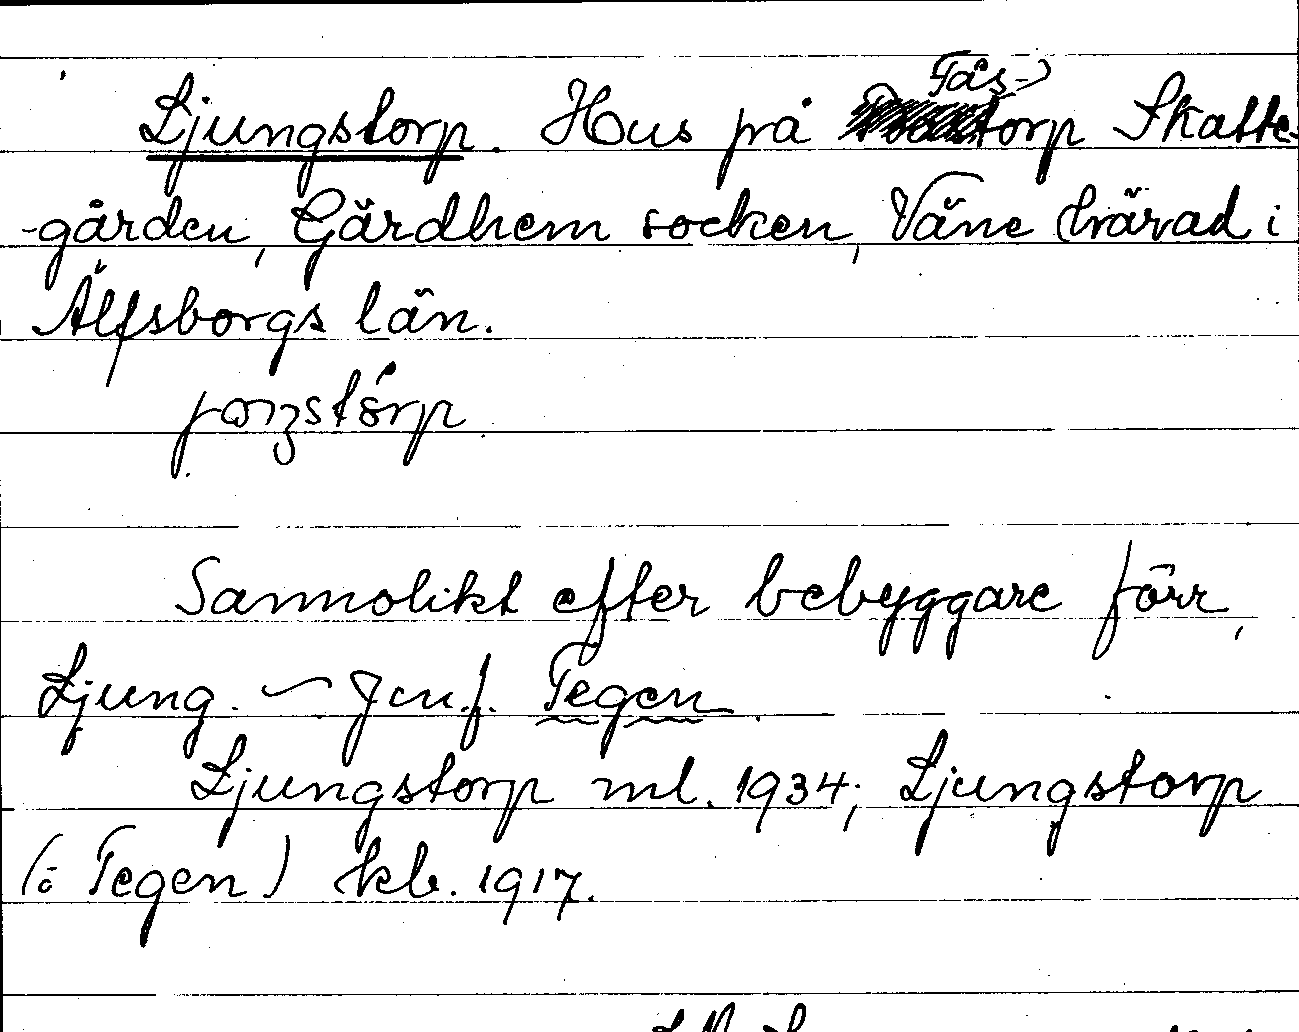 Ljungstorp. Hus på Tås-torp Skatte-
-gården, Gärdhem socken, Väne härad i
Älfsborgs län.
Sannolikt efter bebyggare förr,
Ljung. – Jmf. Tegen.
Ljungstorp ml. 1934; Ljungstorp
(= Tegen) kb. 1917.